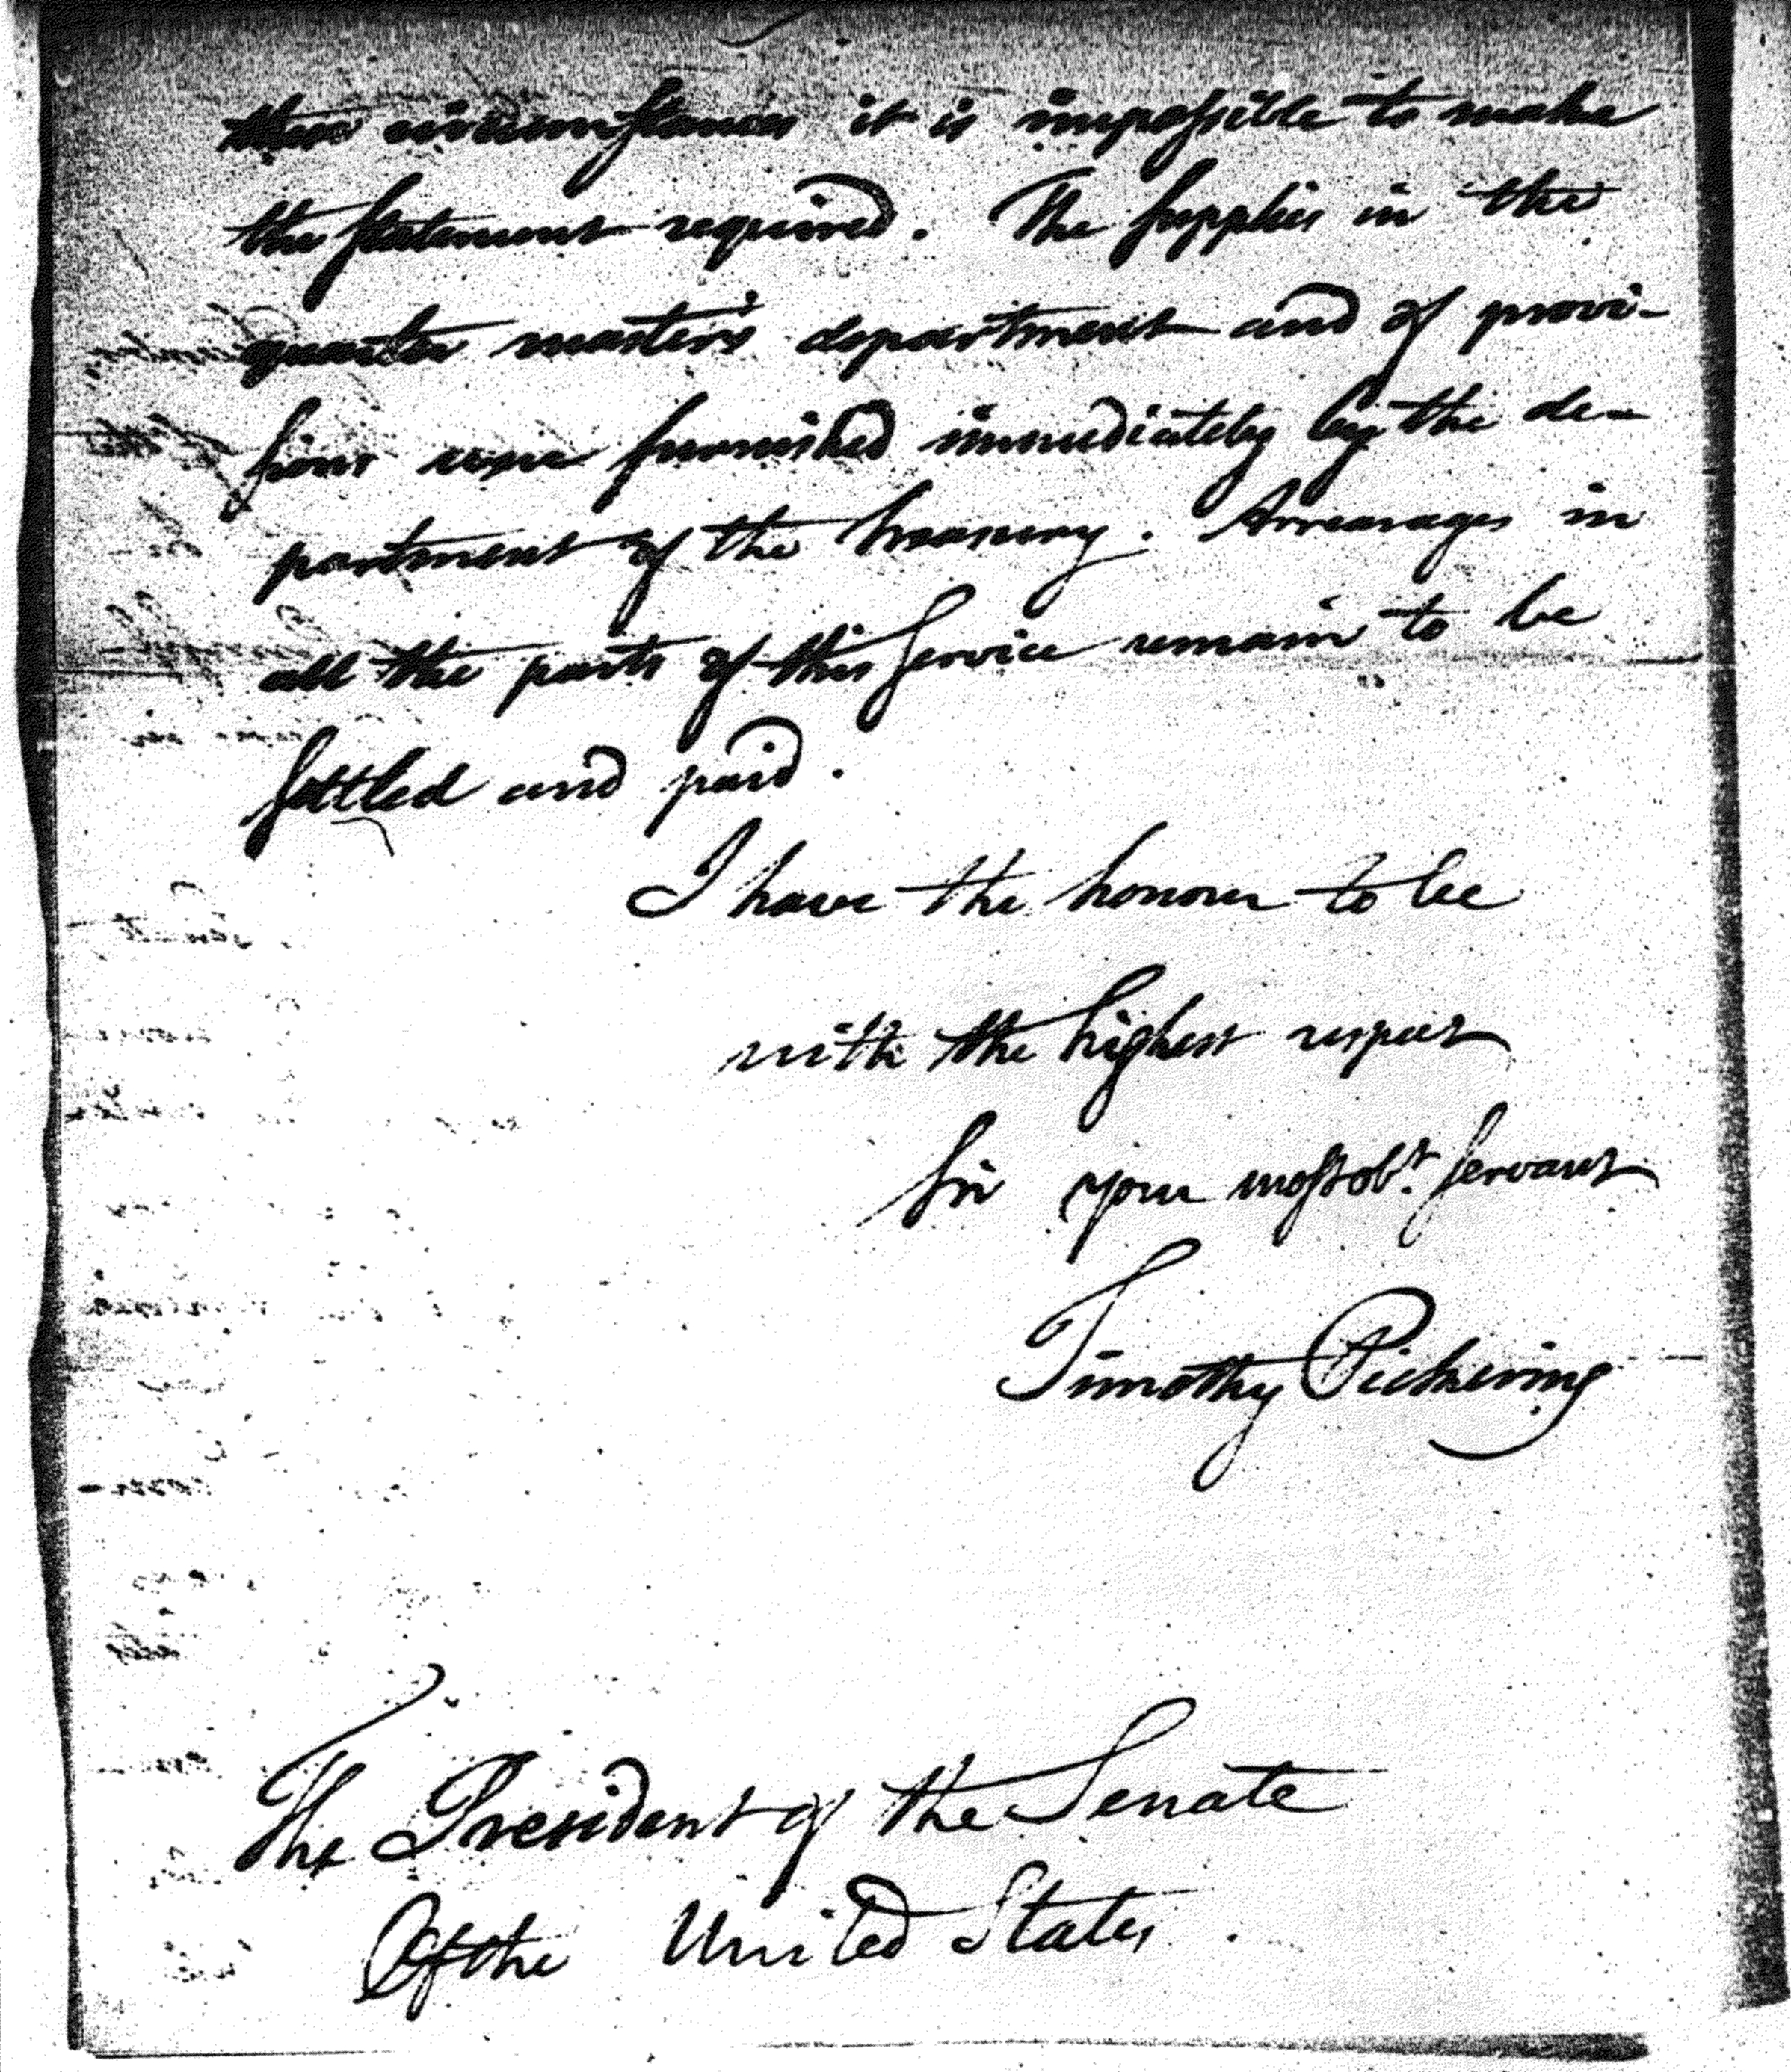 these circumstances it is impossible to make
the statement required. The supplies in the
quarter master's department and of provi-
sions were furnished immediately by the de-
partment of the treasury. Arrearages in
all the parts of this Service remain to be
settled and paid.
I have the honour to be
with the highest respect
Sir your most obt. servant
Timothy Pickering
The President of the Senate
Of the United States.